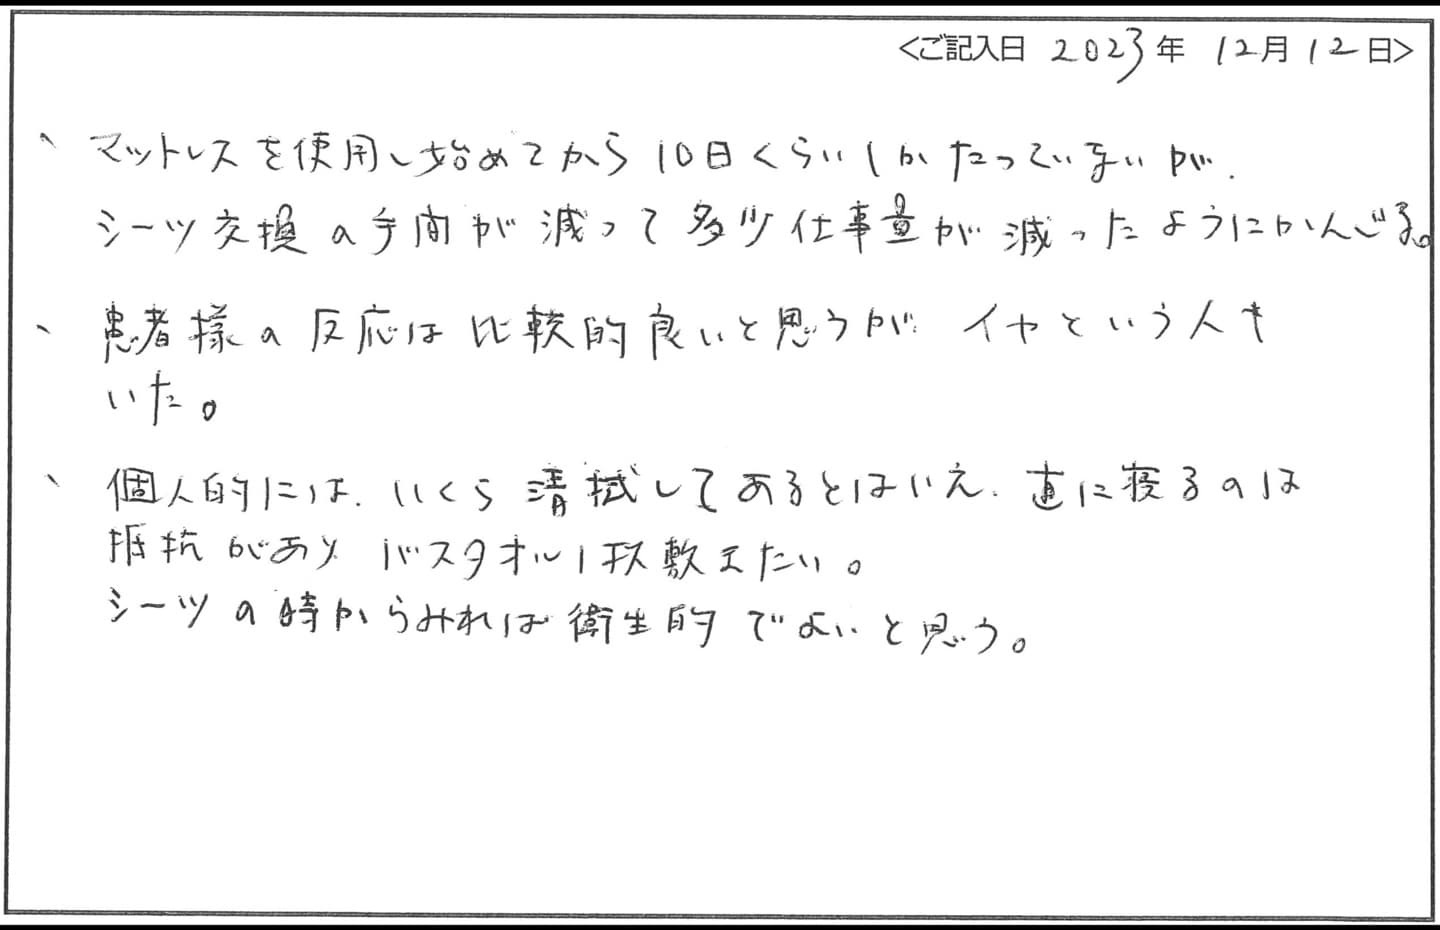 <ご記入日 2023年 12月12日>
、マットレスを使用し始めてから10日くらいしかたっていないが、
シーツ交換の手間が減って多少仕事量が減ったようにかんじる。
、患者様の反応は比較的良いと思うが イヤという人も
いた。
、個人的には、いくら清拭してあるとはいえ、直に寝るのは
抵抗があり バスタオル1枚敷きたい。
シーツの時からみれば衛生的でよいと思う。